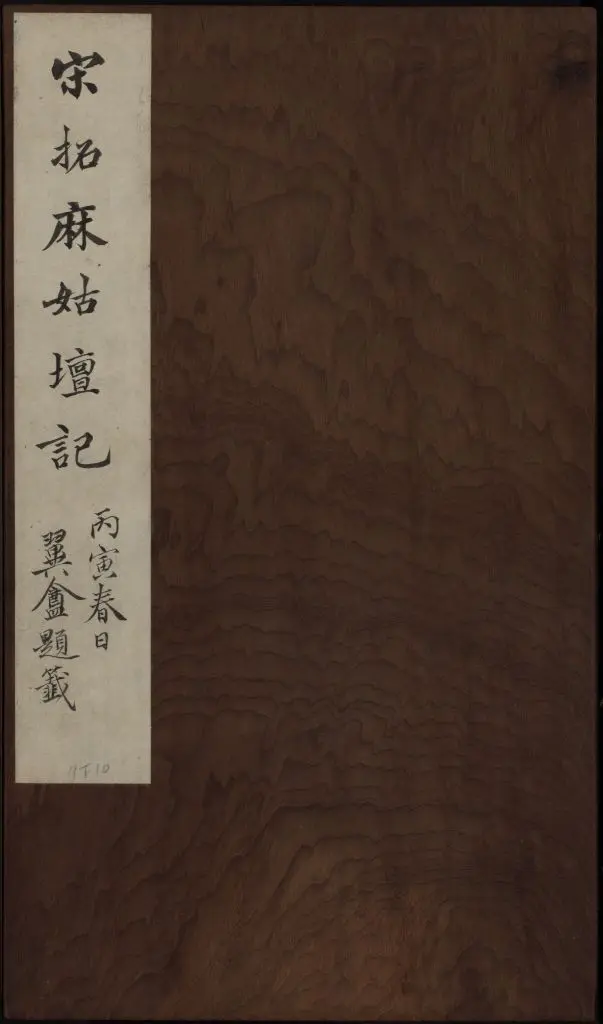 宋拓麻姑壇記
丙寅春日
翼盦題籤